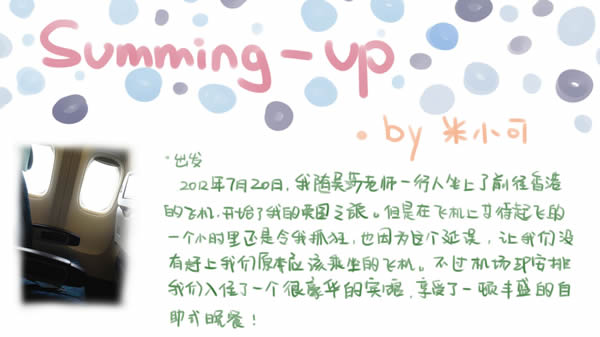 Summing-up
by 米小可
出发
2012年7月20日,我随吴芳老师一行人坐上了前往香港
的飞机,开始了我的英国之旅。但是在飞机上等待起飞的
一个小时里还是令我抓狂,也因为这个延误,让我们没
有赶上我们原本应该乘坐的飞机。不过机场却安排
我们入住了一个很豪华的宾馆,享受了一顿丰盛的自
助式晚餐!